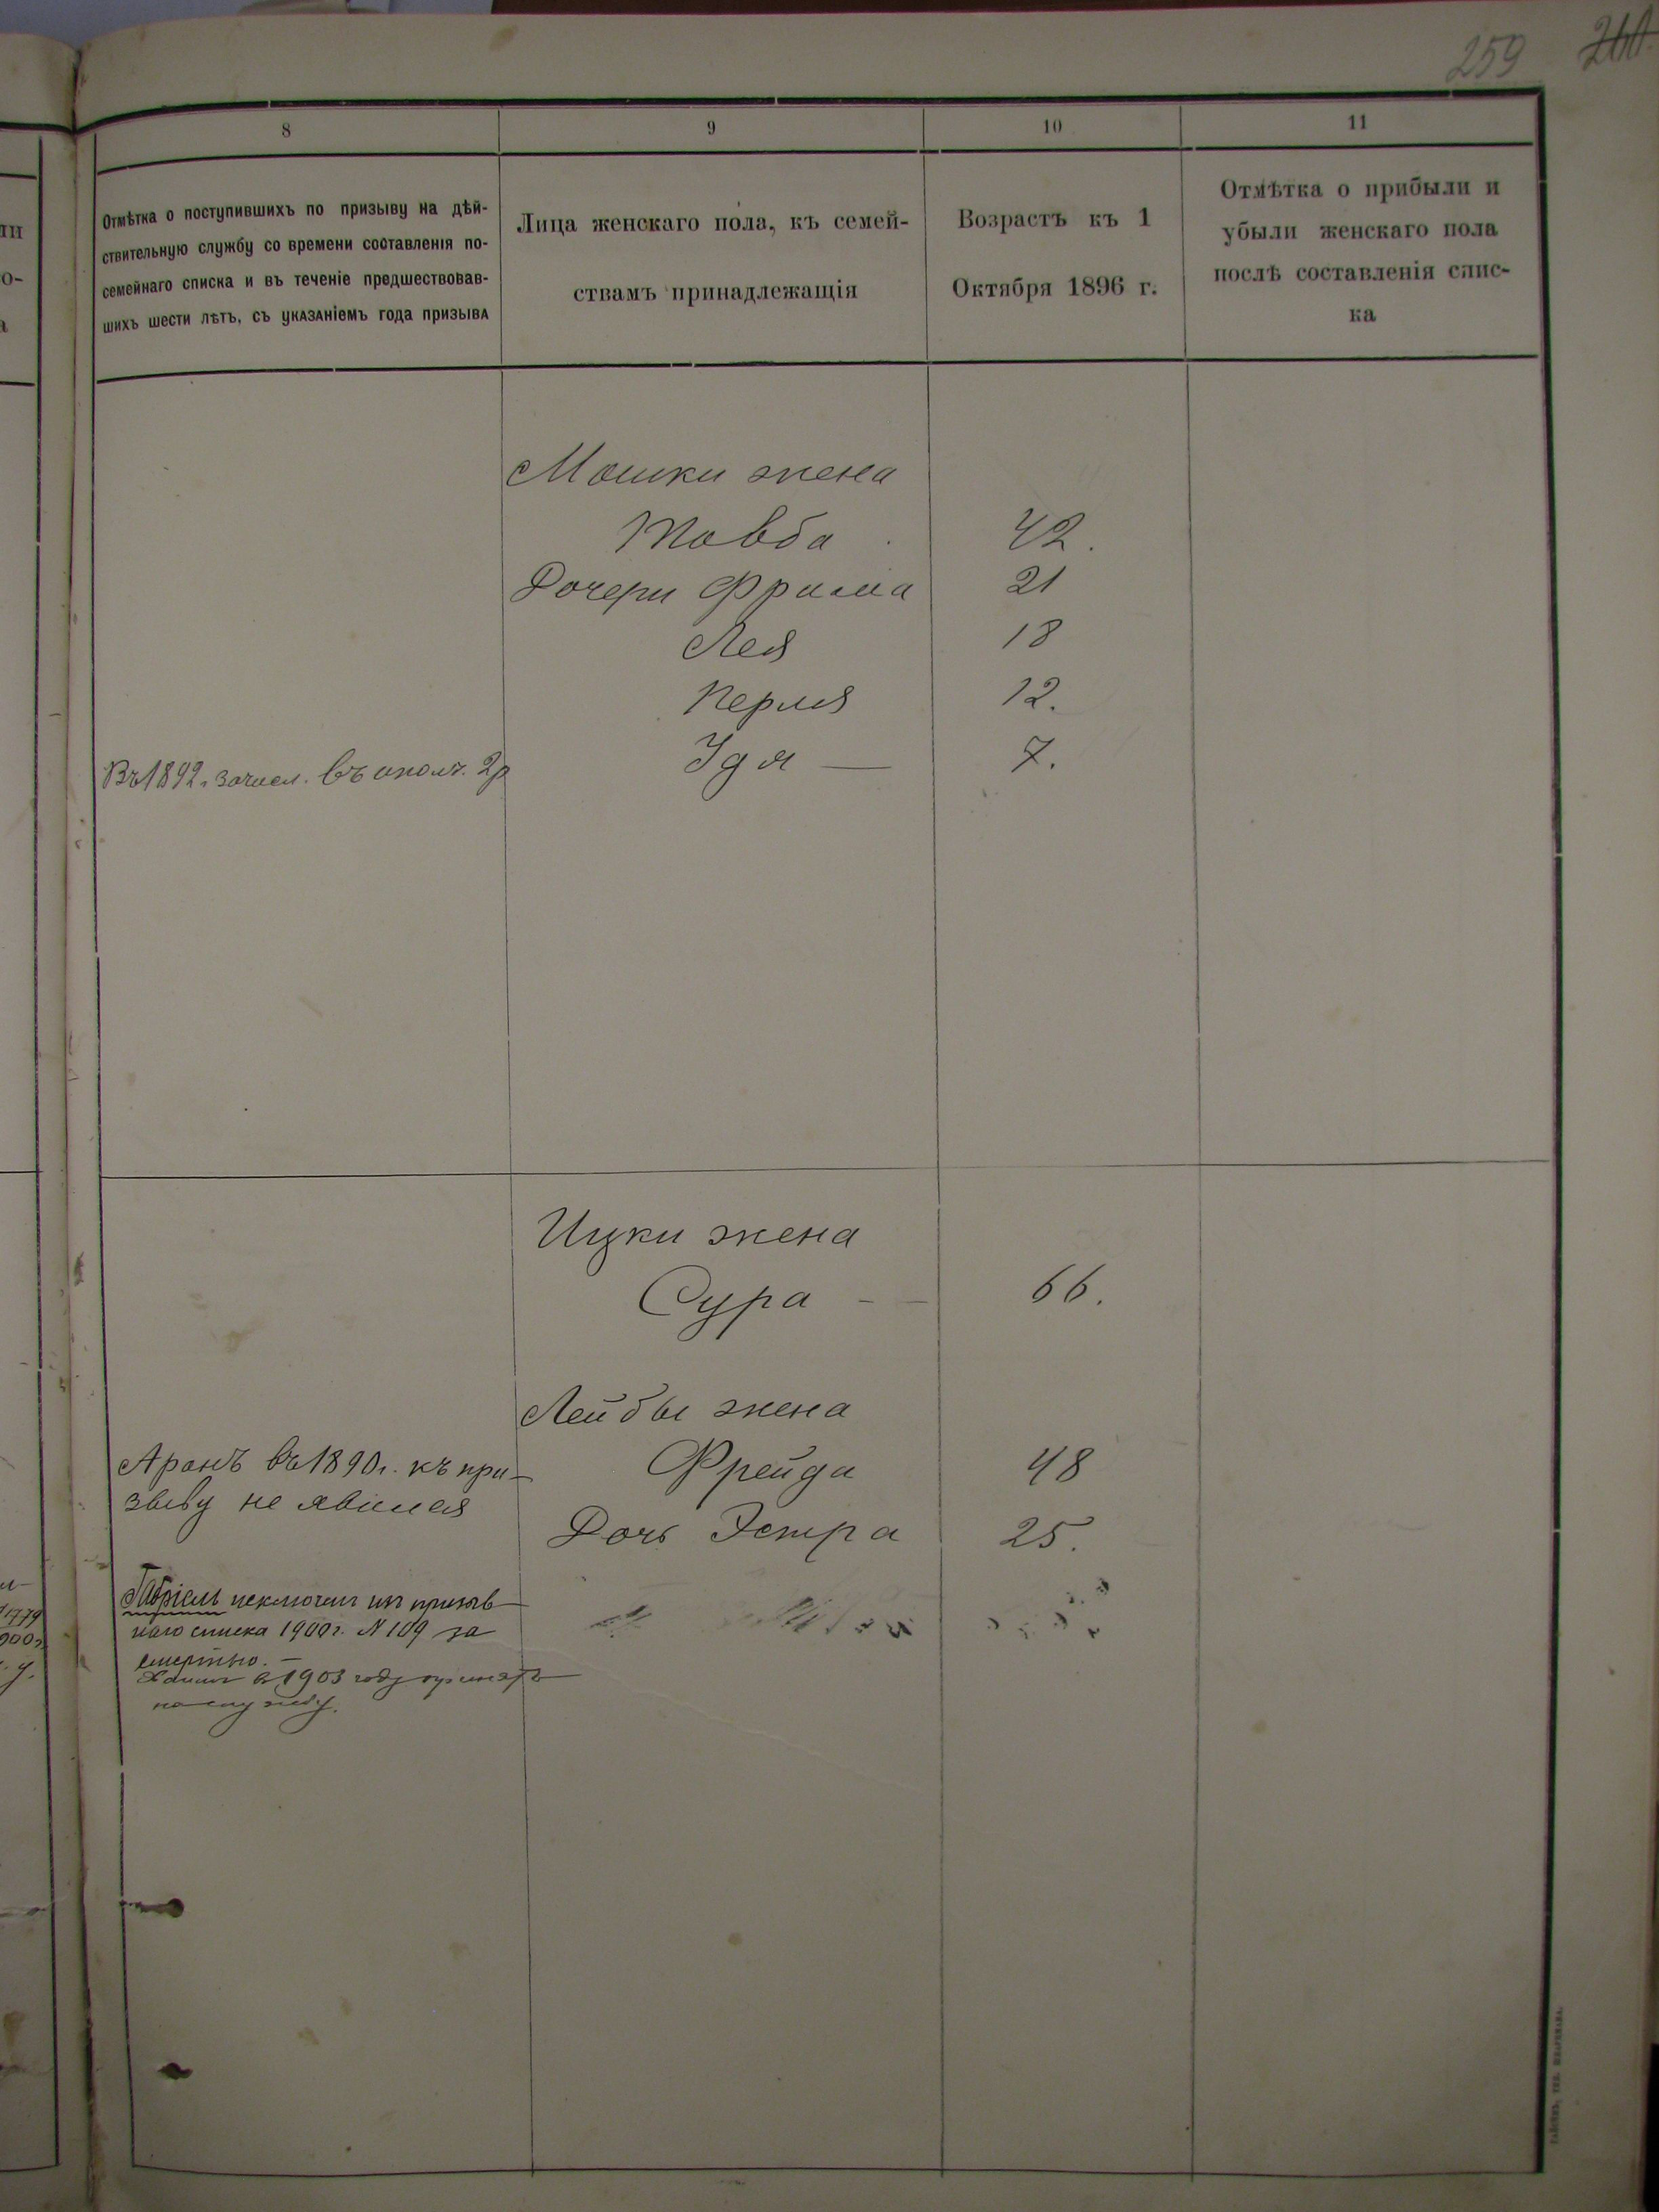 259 260
8 9 10 11
Отмѣтка о поступившихъ по призыву на дѣй-
ствительную службу со времени составленія по-
семейнаго списка и въ теченіе предшествовав-
шихъ шести лѣтъ, съ указаніемъ года призыва
Лица женскаго пола, къ семей-
ствамъ принадлежащія
Возрастъ къ 1
Октября 1896 г.
Отмѣтка о прибыли и
убыли женскаго пола
послѣ составленія спис-
ка
Мошки жена
Товба 42.
Дочери Фрима 21
Лея 18
Перля 12.
Въ 1892 г. зачисл. въ ополч. 2 р
Идя — 7.
Ицки жена
Сура — 66.
Лейбы жена
Аронъ въ 1890 г. къ при-
зыву не явился
Фрейда 48
Дочь Эстра 25.
Габріель исключен из призыв-
наго списка 1900 г. N 109 за
смертью. —
в 1903 году